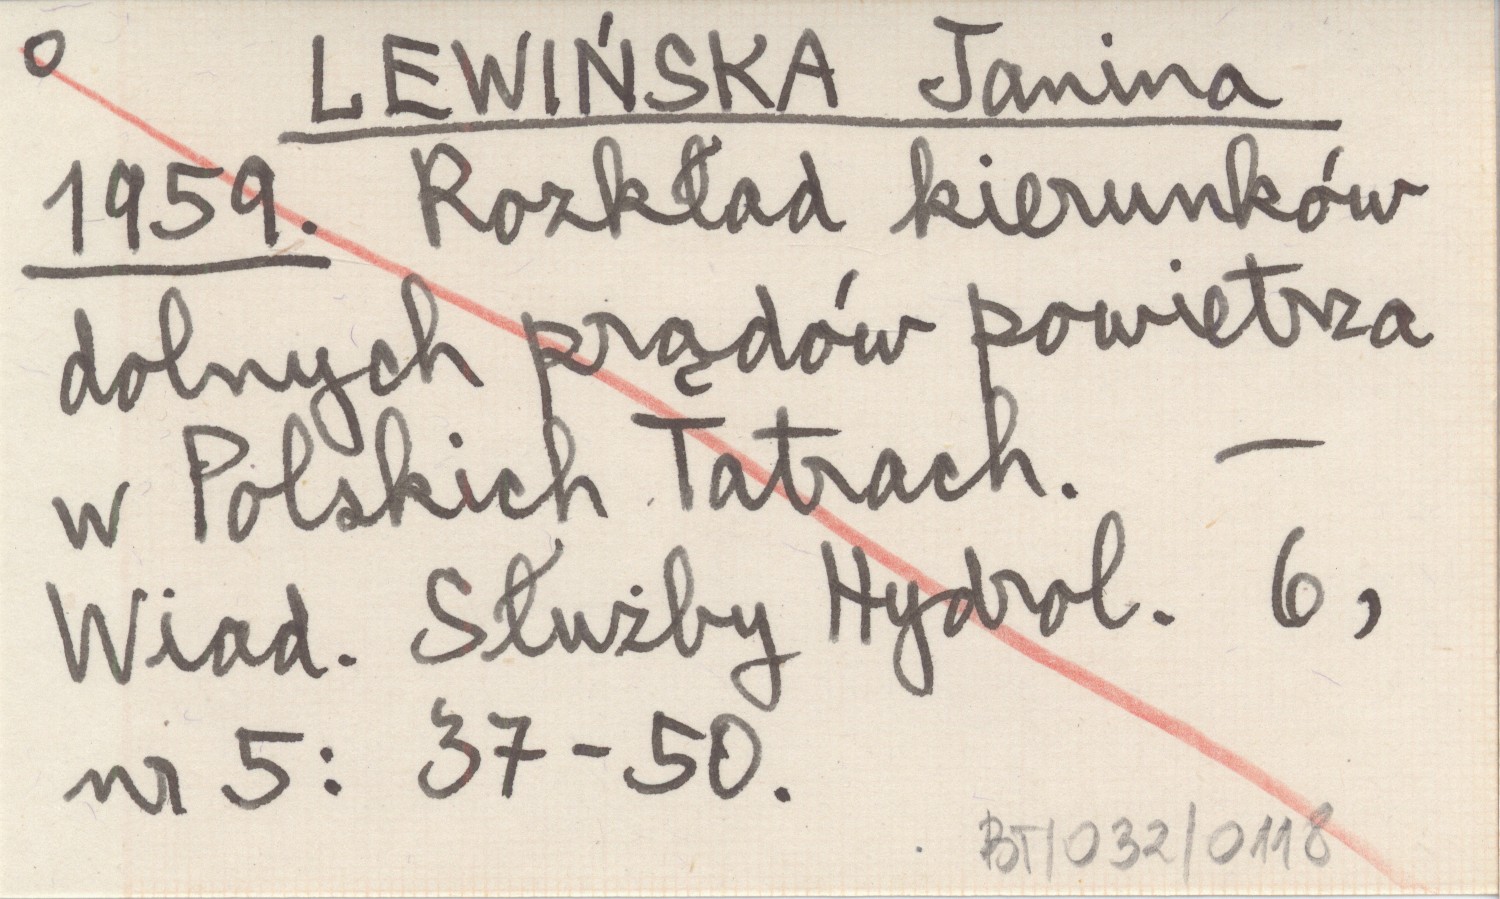 LEWIŃSKA Janina
1959. Rozkład kierunków
dolnych prądów powietrza
w Polskich Tatrach. —
Wiad. Służby Hydrol. 6,
nr 5: 37-50.
BT/032/0118